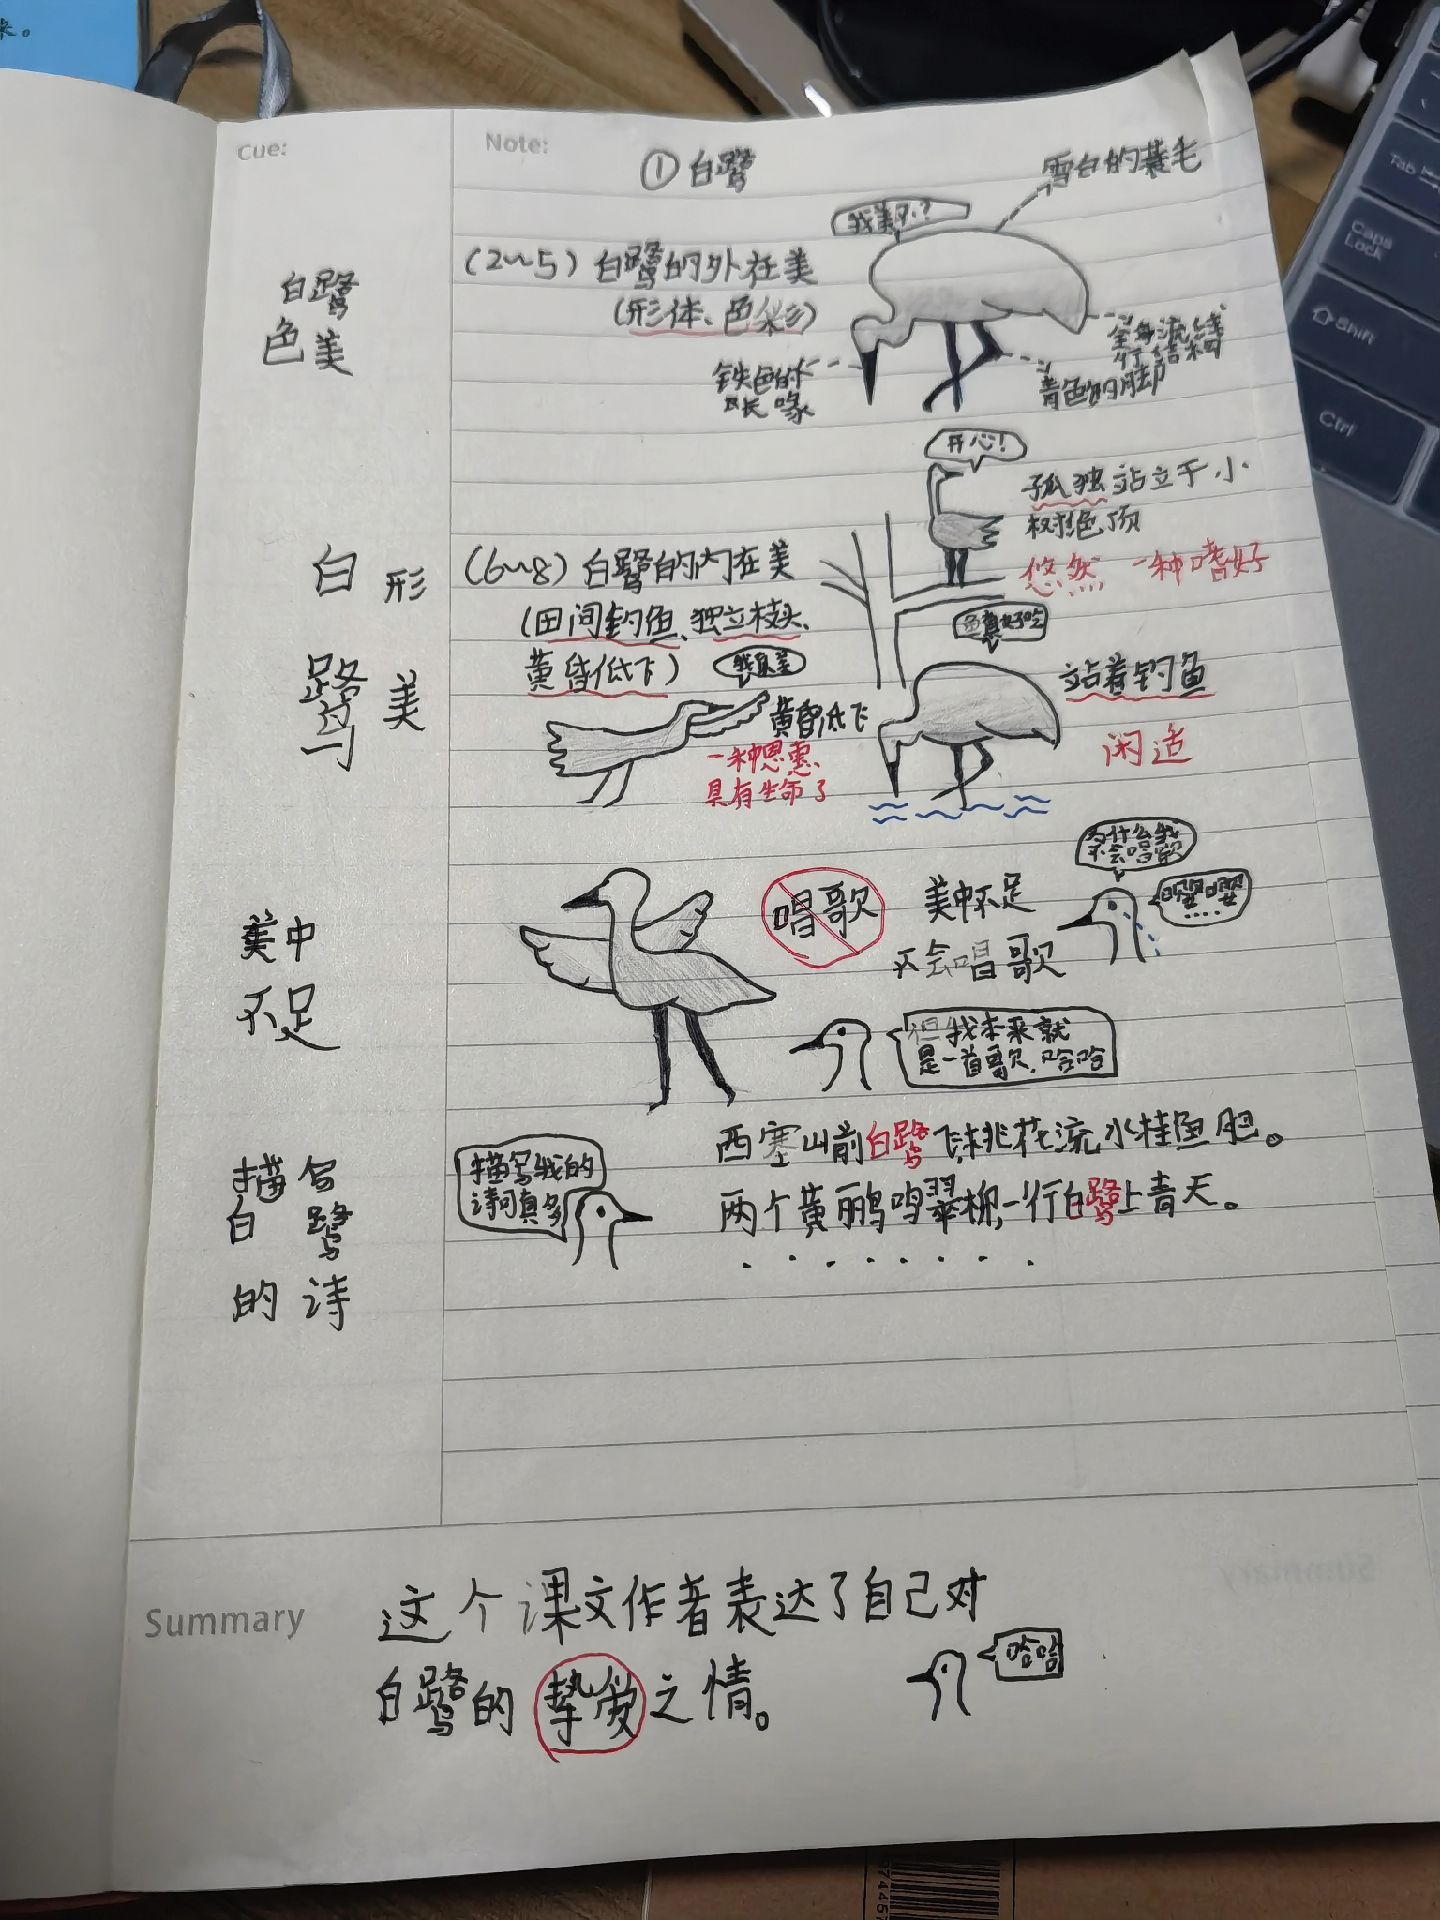 Cue:
Note:
①白鹭
雪白的蓑毛
我美不?
(2~5)白鹭的外在美
(形体、色彩)
白鹭
色美
铁色的
长喙
全身流线
型结构
青色的脚
开心!
孤独站立于小
树绝顶
悠然 一种嗜好
(6~8)白鹭的内在美
(田间钓鱼、独立枝头、
黄昏低飞)
白鹭
形美
鱼真好吃
我真美
站着钓鱼
闲适
黄昏低飞
一种恩惠
具有生命了
美中
不足
唱歌
美中不足
不会唱歌
为什么我
不会唱歌
嘤嘤
....
但我本来就
是一首歌,哈哈
描写
白鹭
的诗
描写我的
诗词真多
西塞山前白鹭飞,桃花流水桂鱼肥。
两个黄鹂鸣翠柳,一行白鹭上青天。
........
Summary
这个课文作者表达了自己对
白鹭的挚爱之情。
哈哈
Caps
Lock
Tab
Shift
Ctrl